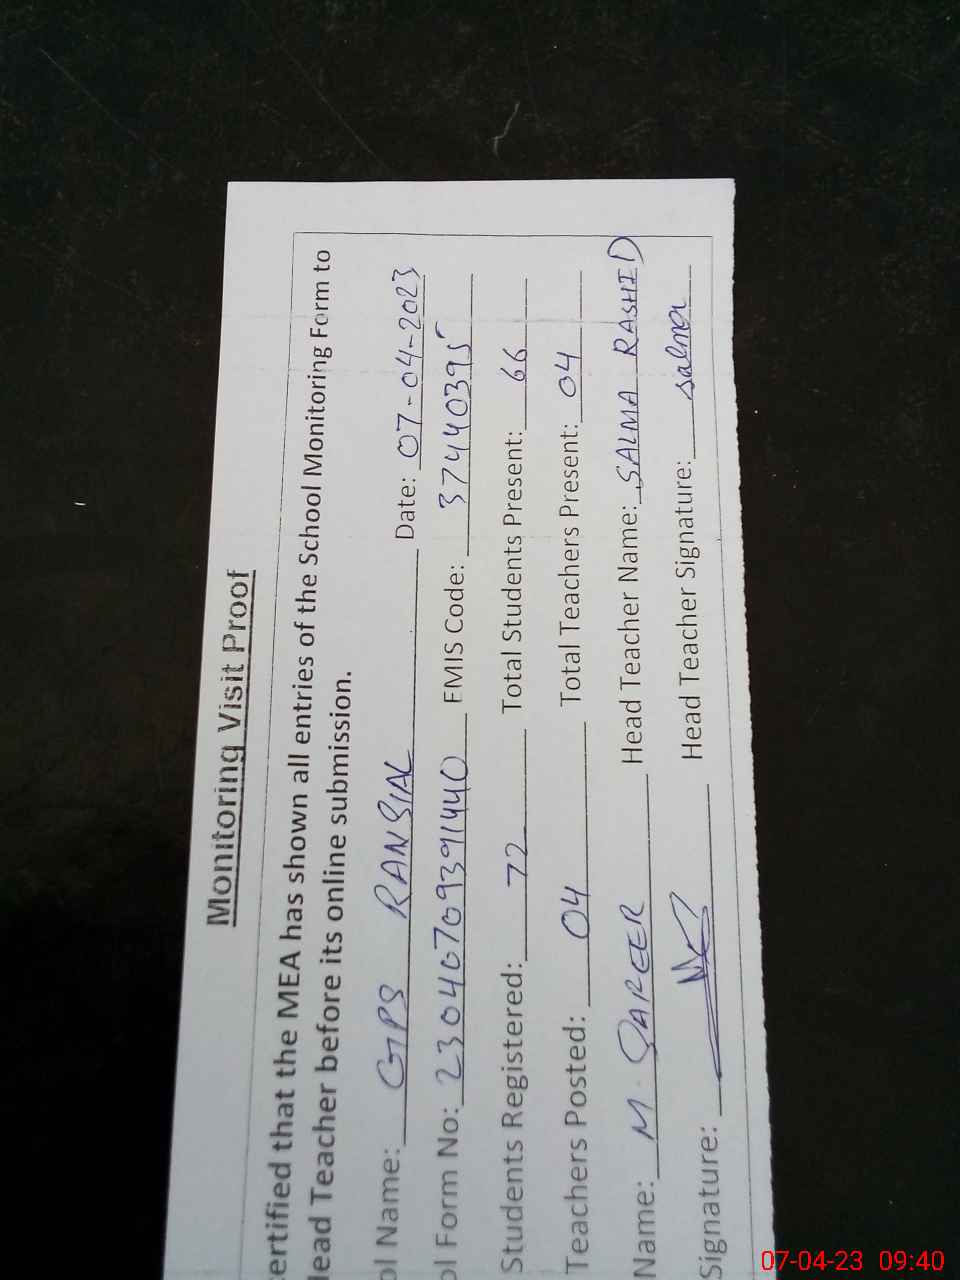 Monitoring Visit Proof
ertified that the MEA has shown all entries of the School Monitoring Form to
lead Teacher before its online submission.
ol Name: GPS RANSIAL Date: 07-04-2023
ol Form No: 23040709391440 EMIS Code: 37440395
Students Registered: 72 Total Students Present: 66
Teachers Posted: 04 Total Teachers Present: 04
Name: M. QAREER Head Teacher Name: SALMA RASHID
Signature: Head Teacher Signature: salma
07-04-23 09:40